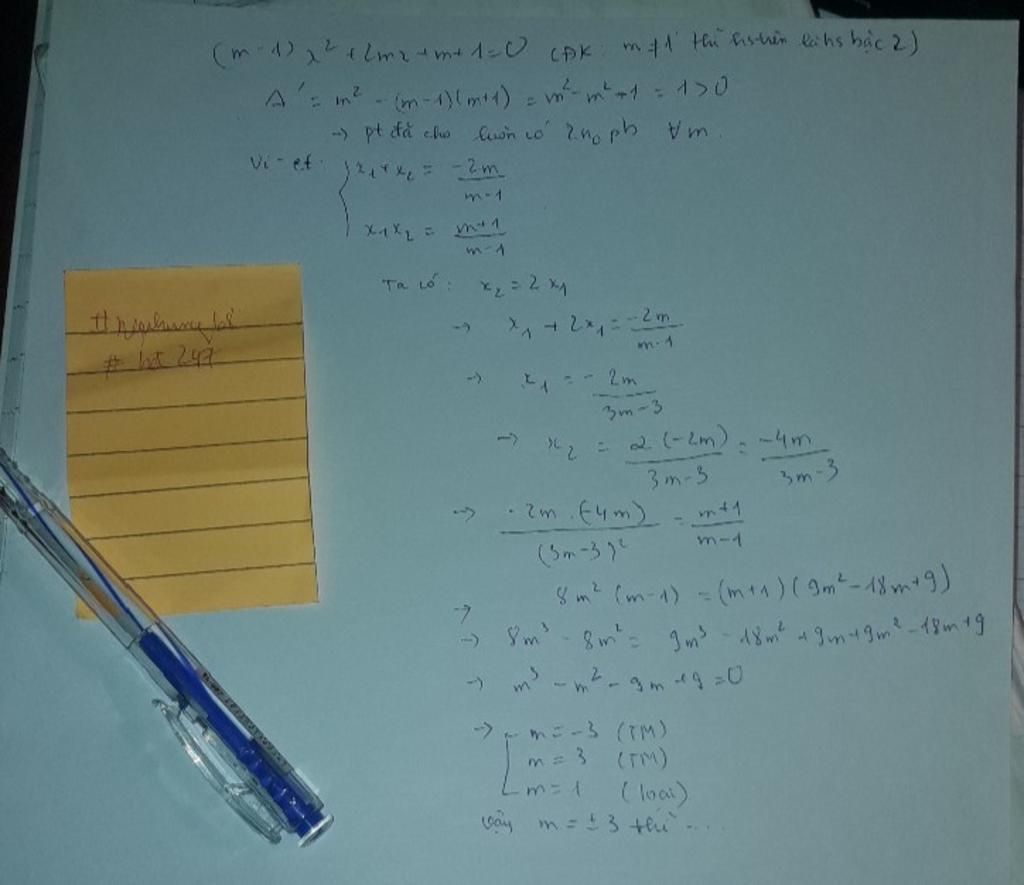 (m-1)x² + 2mx + m + 1 = 0 (ĐK: m ≠ 1 thì bậc 2)
Δ' = m² - (m-1)(m+1) = m² - m² + 1 = 1 > 0
→ pt đã cho luôn có 2 n₀ pb ∀m.
Vi-et: x₁ + x₂ = -2m/m-1
x₁x₂ = m+1/m-1
Ta có: x₂ = 2x₁
→ x₁ + 2x₁ = -2m/m-1
→ x₁ = -2m/3m-3
→ x₂ = 2(-2m)/3m-3 = -4m/3m-3
→ -2m.(-4m)/(3m-3)² = m+1/m-1
→ 8m²(m-1) = (m+1)(9m² - 18m + 9)
→ 8m³ - 8m² = 9m³ - 18m² + 9m + 9m² - 18m + 9
→ m³ - m² - 9m + 9 = 0
→ m = -3 (TM)
m = 3 (TM)
m = 1 (loại)
Vậy m = ±3 thì ...
# 247